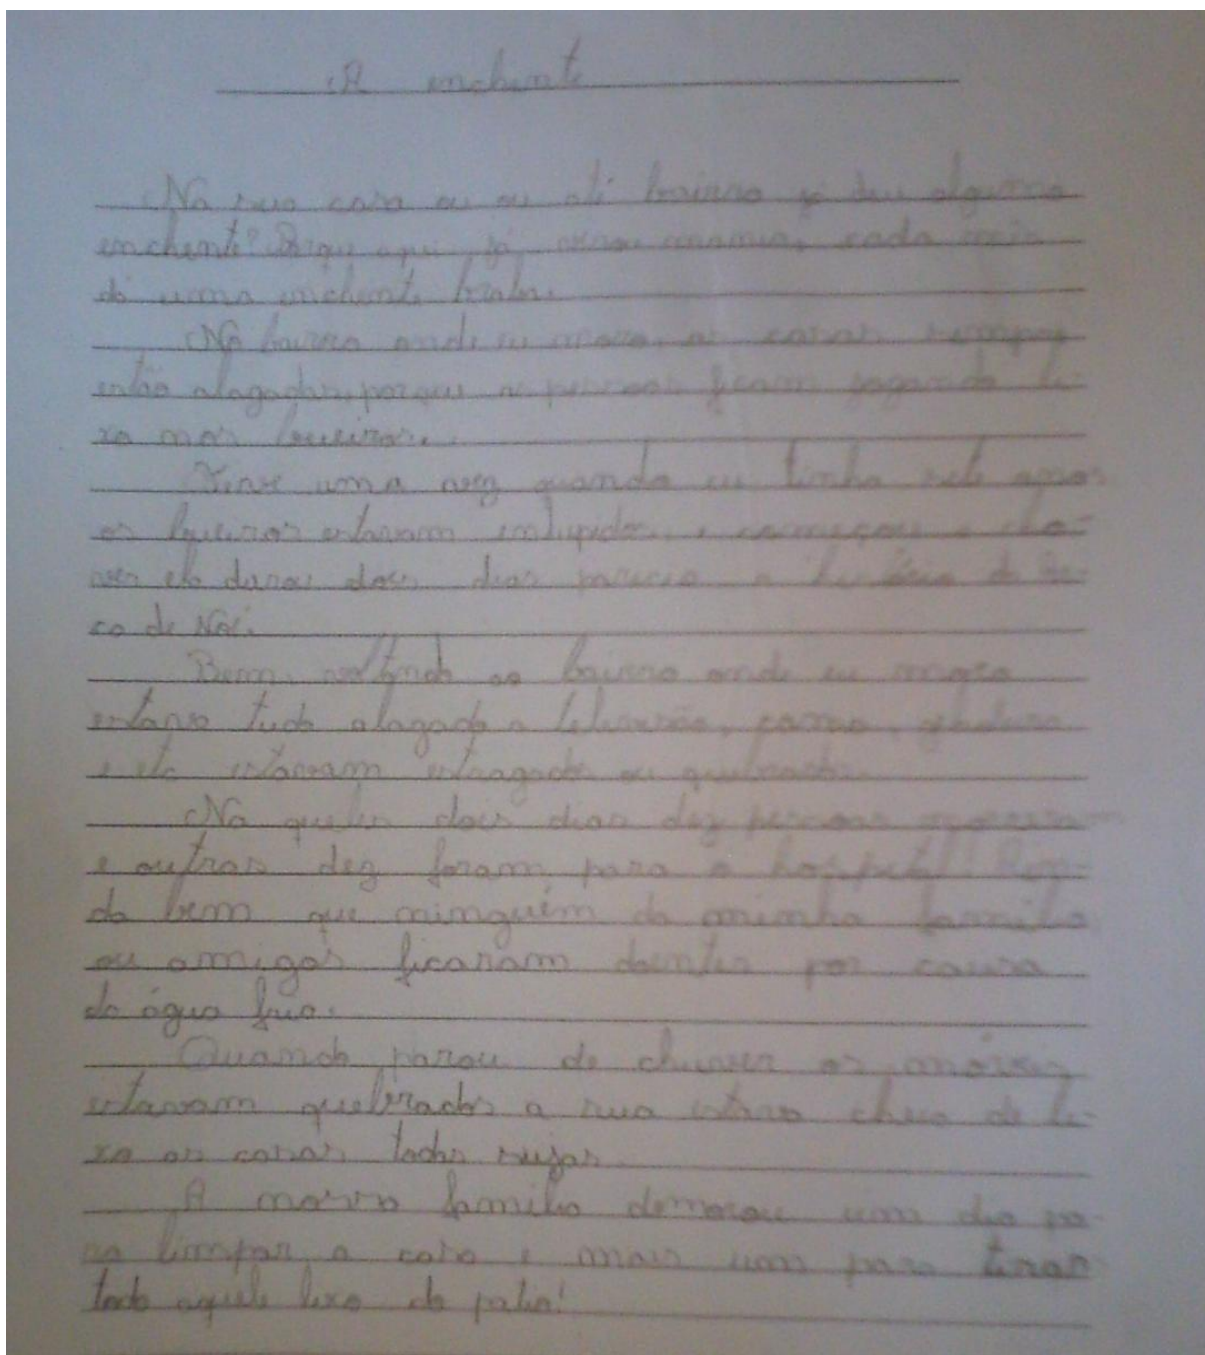 A enchente
Na sua casa ou ou até bairro já deu alguma
enchente? Porque aqui já virou mania, cada mês
dá uma enchente braba.
No bairro onde eu moro, as casas sempre
estão alagadas, porque as pessoas ficam jogando li-
xo nos bueiros.
Teve uma vez quando eu tinha sete anos
os bueiros estavam entupidos, e começou a cho-
ver ela durou dois dias parecia a história da Ar-
ca de Noé.
Bem, voltando ao bairro onde eu moro
estava tudo alagado a televisão, cama, geladeira
e etc estavam estragados ou quebrados.
Na queles dois dias dez pessoas morreram
e outras dez foram para o hospital!
da bem que ninguém da minha familia
ou amigos ficaram doentes por causa
da água fria.
Quando parou de chuver os móveis
estavam quebrados a rua estava cheia de li-
xo as casas todas sujas.
A nossa familia demorou um dia pa-
ra limpar a casa e mais um para tirar
todo aquele lixo do patio!